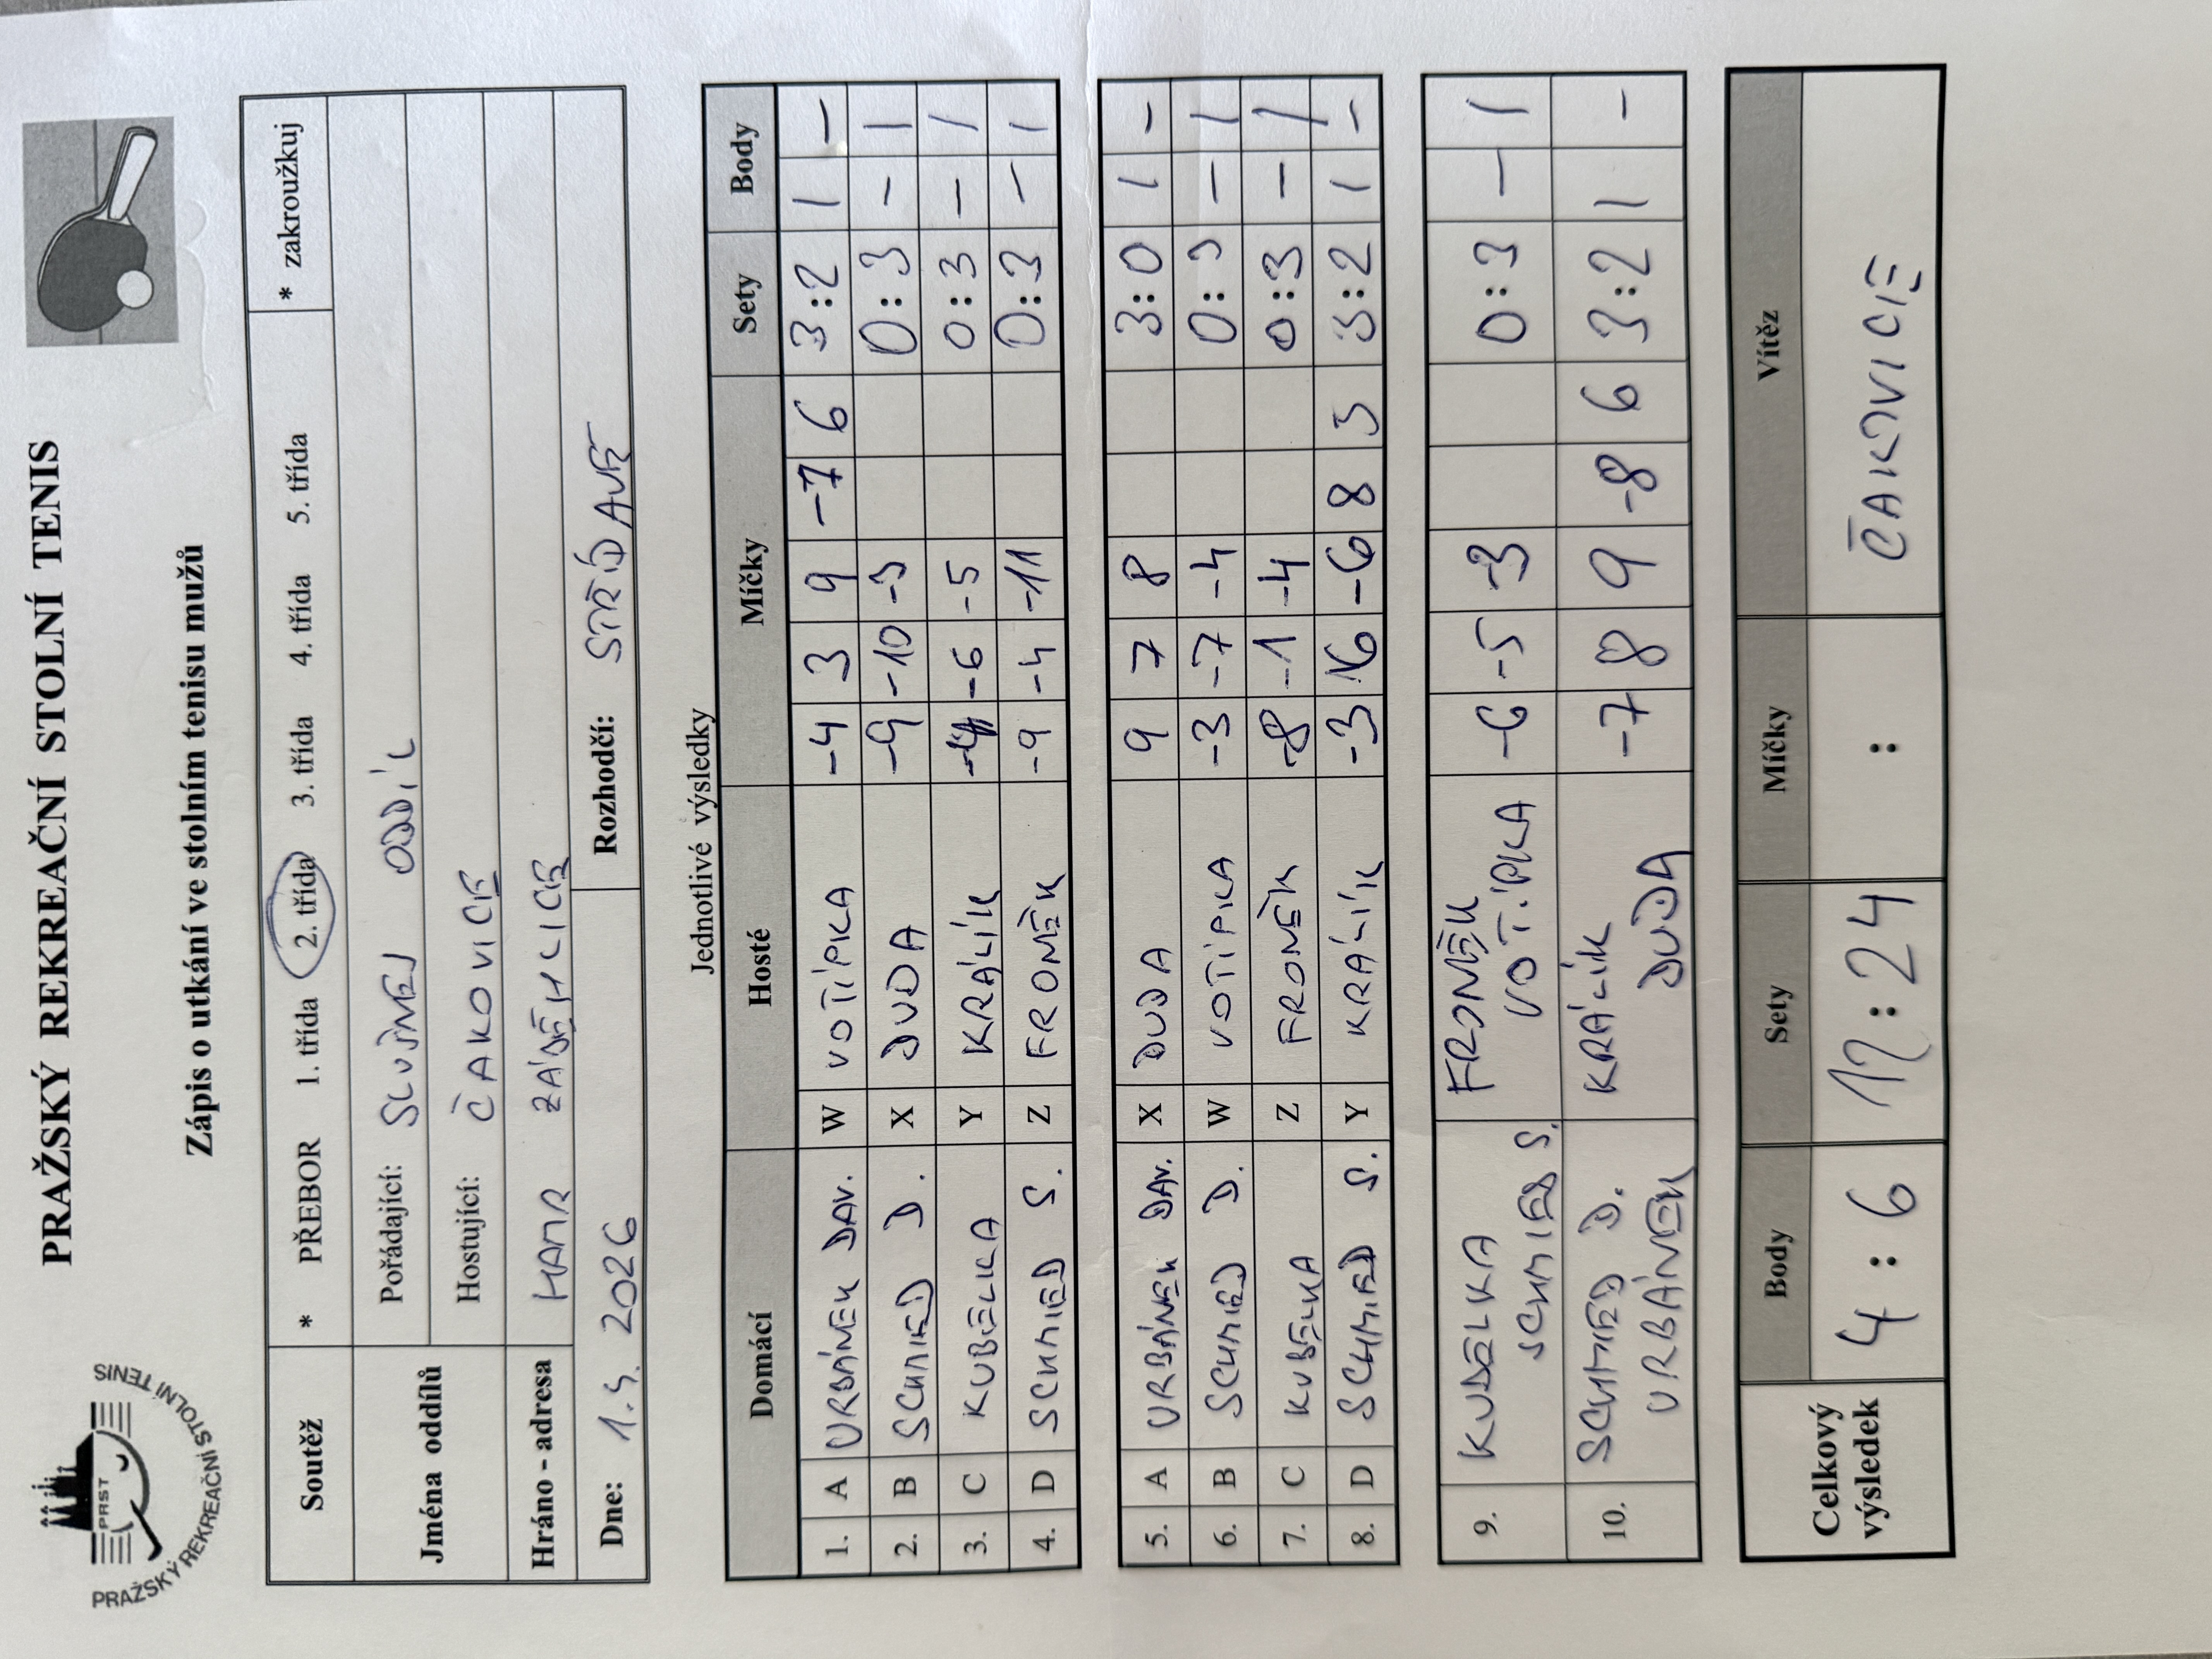 PRAŽSKÝ REKREAČNÍ STOLNÍ TENIS
PRST
PRAŽSKÝ REKREAČNÍ STOLNÍ TENIS
Zápis o utkání ve stolním tenisu mužů
Soutěž * PŘEBOR 1. třída 2. třída 3. třída 4. třída 5. třída * zakroužkuj
Jména oddílů Pořádající: SLUŽNEJ ODDÍL
Hostující: ČAKOVICE
Hráno - adresa HAMR ZÁBĚHLICE
Dne: 1.4. 2026 Rozhodčí: STŘÍDAVĚ
Jednotlivé výsledky
Domácí Hosté Míčky Sety Body
1. A URBÁNEK DAV. W VOTÍPKA -4 3 9 -7 6 3:2 1 -
2. B SCHMIED D. X DUDA -9 -10 -3 0:3 - 1
3. C KUBELKA Y KRÁLÍK -6 -5 0:3 - 1
4. D SCHMIED S. Z FRONĚK -9 -4 -11 0:3 - 1
5. A URBÁNEK DAV. X DUDA 9 7 8 3:0 1 -
6. B SCHMIED D. W VOTÍPKA -3 -7 -4 0:3 - 1
7. C KUBELKA Z FRONĚK -8 -1 -4 0:3 - 1
8. D SCHMIED S. Y KRÁLÍK -3 16 -6 8 3 3:2 1 -
9. KUDELKA SCHMIED S. FRONĚK VOTÍPKA -6 -5 -3 0:3 - 1
10. SCHMIED D. URBÁNEK KRÁLÍK DUDA -7 8 9 -8 6 3:2 1 -
Celkový výsledek Body Sety Míčky Vítěz
4 : 6 12 : 24 : ČAKOVICE